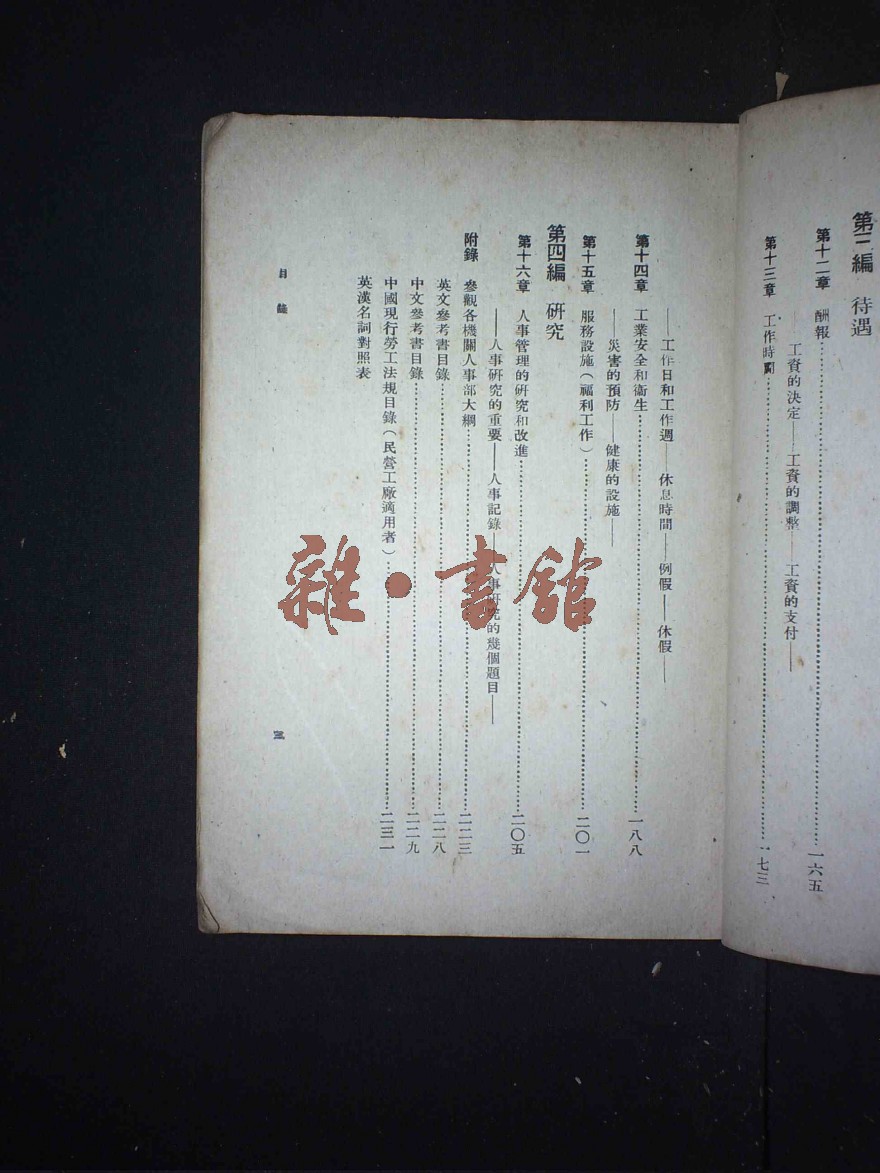 第三編　待遇
第十二章　酬報……一六五
——工資的決定——工資的調整——工資的支付——
第十三章　工作時間……一七三
——工作日和工作週——休息時間——例假——休假——
第十四章　工業安全和衞生……一八八
——災害的預防——健康的設施——
第十五章　服務設施（福利工作）……二〇一
第四編　研究
第十六章　人事管理的研究和改進……二〇五
——人事研究的重要——人事記錄——人事研究的幾個題目——
附錄　參觀各機關人事部大綱……二二三
英文參考書目錄……二二八
中文參考書目錄……二二九
中國現行勞工法規目錄（民營工廠適用者）……二三一
英漢名詞對照表
目錄
三
雜·書館